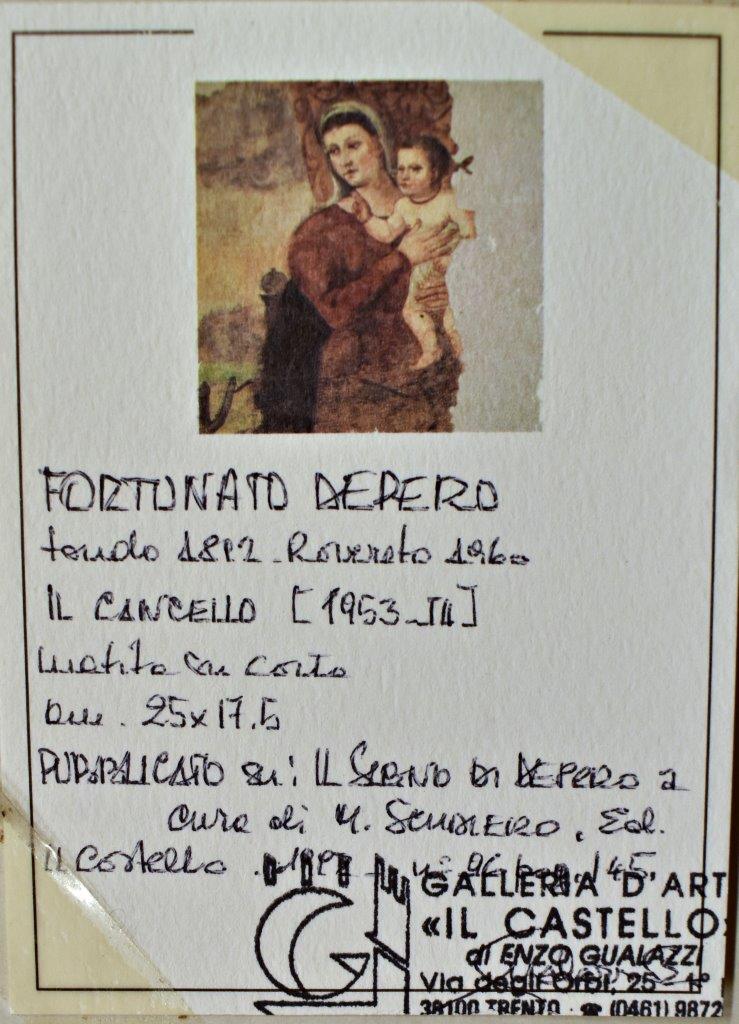 FORTUNATO DEPERO
fondo 1892 - Rovereto 1960
IL CANCELLO [1953-54]
matita su carta
cm. 25x17.5
PUBBLICATO su: IL SEGNO DI DEPERO a
cura di M. SCUDIERO, Ed.
Il Castello n° 96 pag. 145
GALLERIA D'ART
«IL CASTELLO
di ENZO GUALAZZI
Via degli Orbi, 25
38100 TRENTO - ☎ (0461) 9872